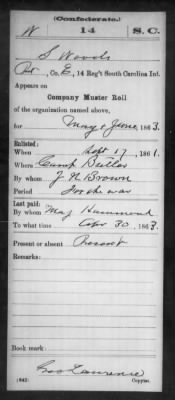 (Confederate.)
W 14 S.C.
S Woods
Pvt, Co. E, 14 Reg't South Carolina Inf.
Appears on
Company Muster Roll
of the organization named above,
for May & June, 1863.
Enlisted:
When Sept 17, 1861.
Where Camp Butler
By whom J N Brown
Period For the war
Last paid:
By whom Maj Hammond
To what time Apr 30, 1863.
Present or absent Present
Remarks:
Book mark:
Geo Lawrence
(642) Copyist.